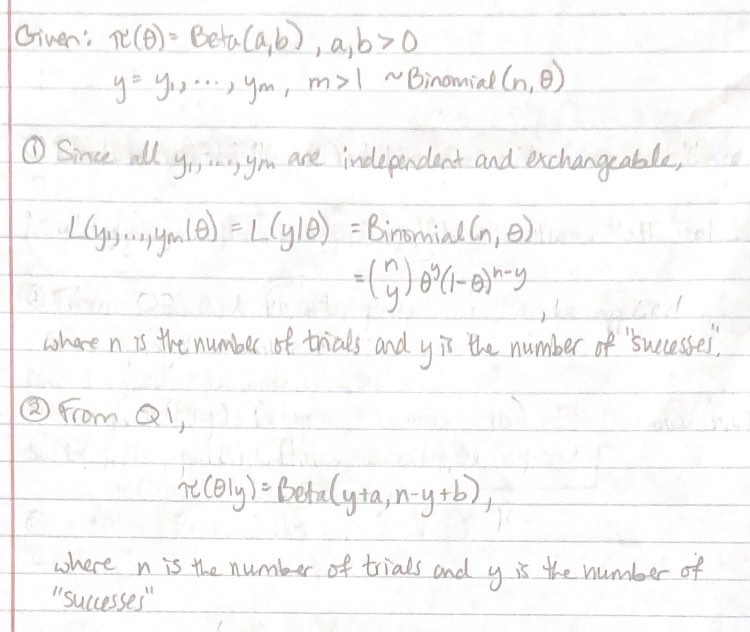 Given: π(θ) = Beta(a,b), a,b > 0
y = y₁, ..., yₘ, m > 1 ~ Binomial(n, θ)
① Since all y₁, ..., yₘ are independent and exchangeable,
L(y₁, ..., yₘ|θ) = L(y|θ) = Binomial(n, θ)
= (n y) θ^y (1-θ)^n-y,
where n is the number of trials and y is the number of "successes".
② From Q1,
π(θ|y) = Beta(y+a, n-y+b),
where n is the number of trials and y is the number of
"successes"